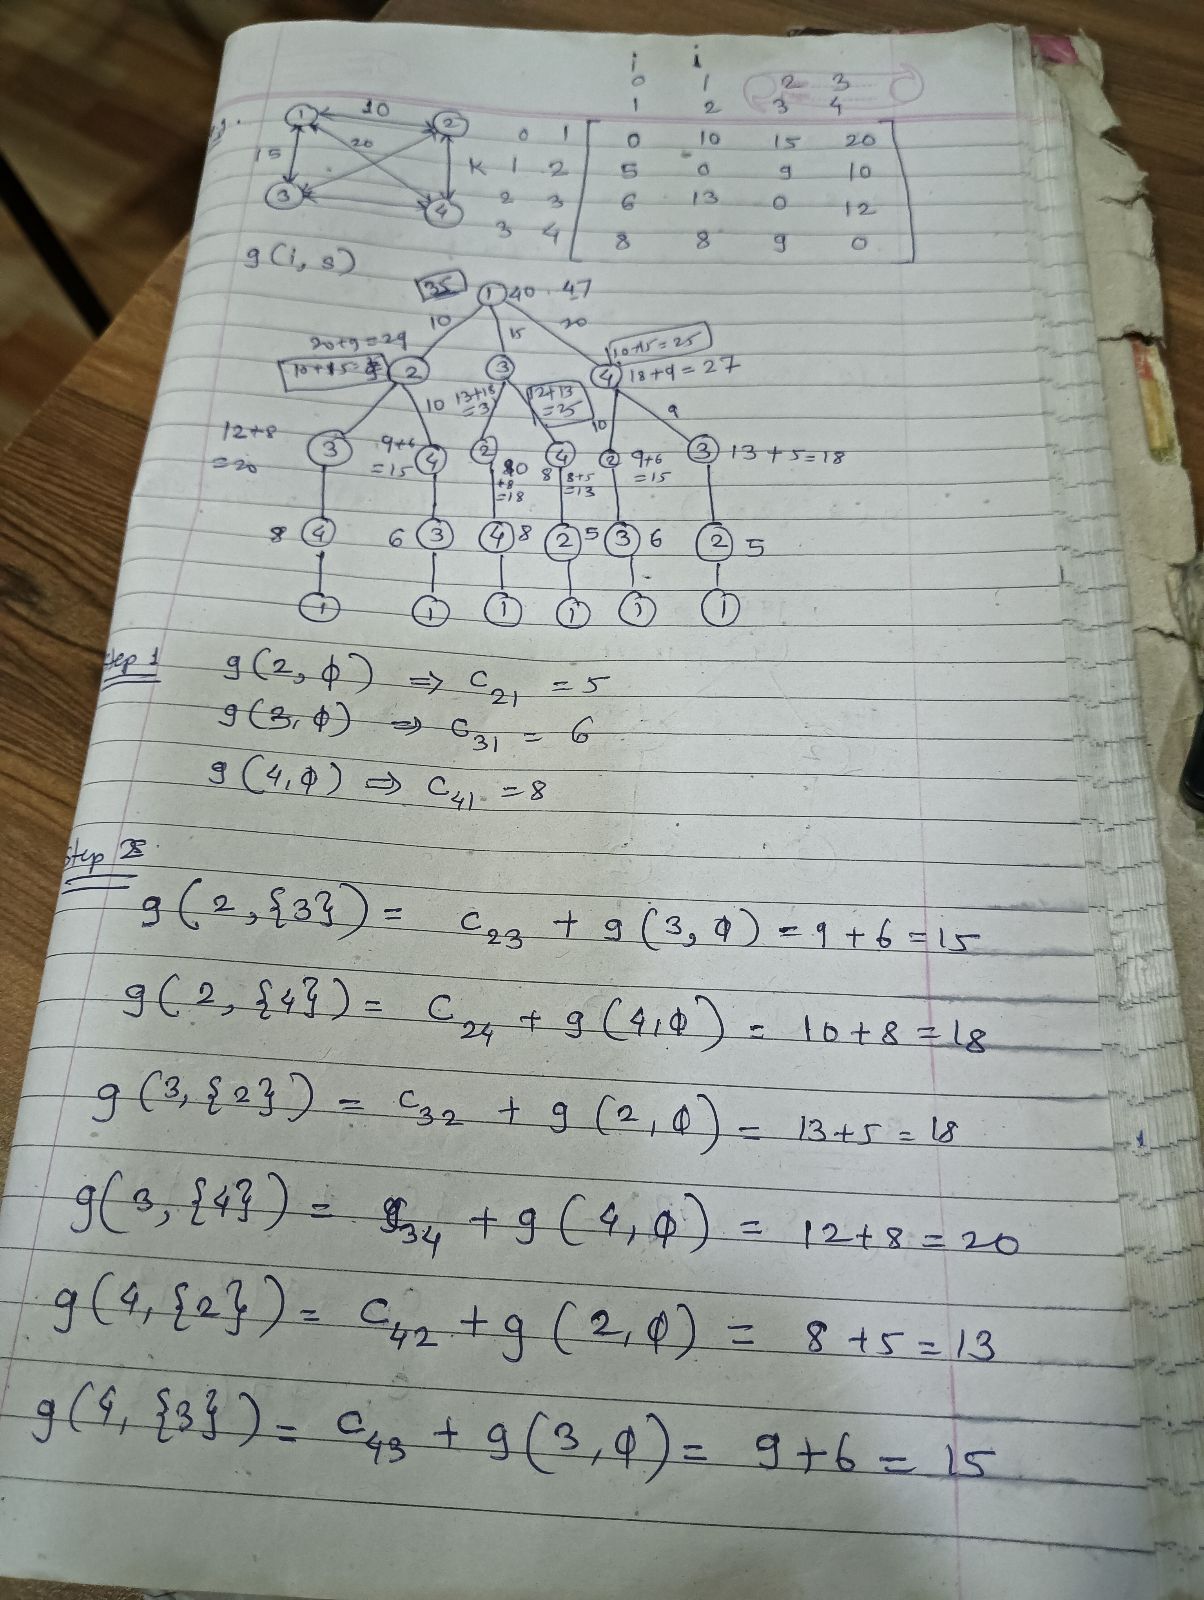 i i
0 1 2 3
1 2 3 4
1 10 2
15 20
3 4
0 1 0 10 15 20
K 1 2 5 0 9 10
2 3 6 13 0 12
3 4 8 8 9 0
g(i, s)
35 1 40 47
10 15 20
20+9=29 10+15=25
10+15= 2 3 4 18+9=27
10 13+18 12+13 =25 10 9
12+8 =20 3 9+6 =15 4 2 4 2 9+6 =15 3 13+5=18
10 +8 =18 8 8+5 =13
8 4 6 3 4 8 2 5 3 6 2 5
1 1 1 1 1 1
step 1 g(2, ϕ) ⇒ C21 = 5
g(3, ϕ) ⇒ C31 = 6
g(4, ϕ) ⇒ C41 = 8
step 2
g(2, {3}) = C23 + g(3, ϕ) = 9 + 6 = 15
g(2, {4}) = C24 + g(4, ϕ) = 10 + 8 = 18
g(3, {2}) = C32 + g(2, ϕ) = 13 + 5 = 18
g(3, {4}) = C34 + g(4, ϕ) = 12 + 8 = 20
g(4, {2}) = C42 + g(2, ϕ) = 8 + 5 = 13
g(4, {3}) = C43 + g(3, ϕ) = 9 + 6 = 15